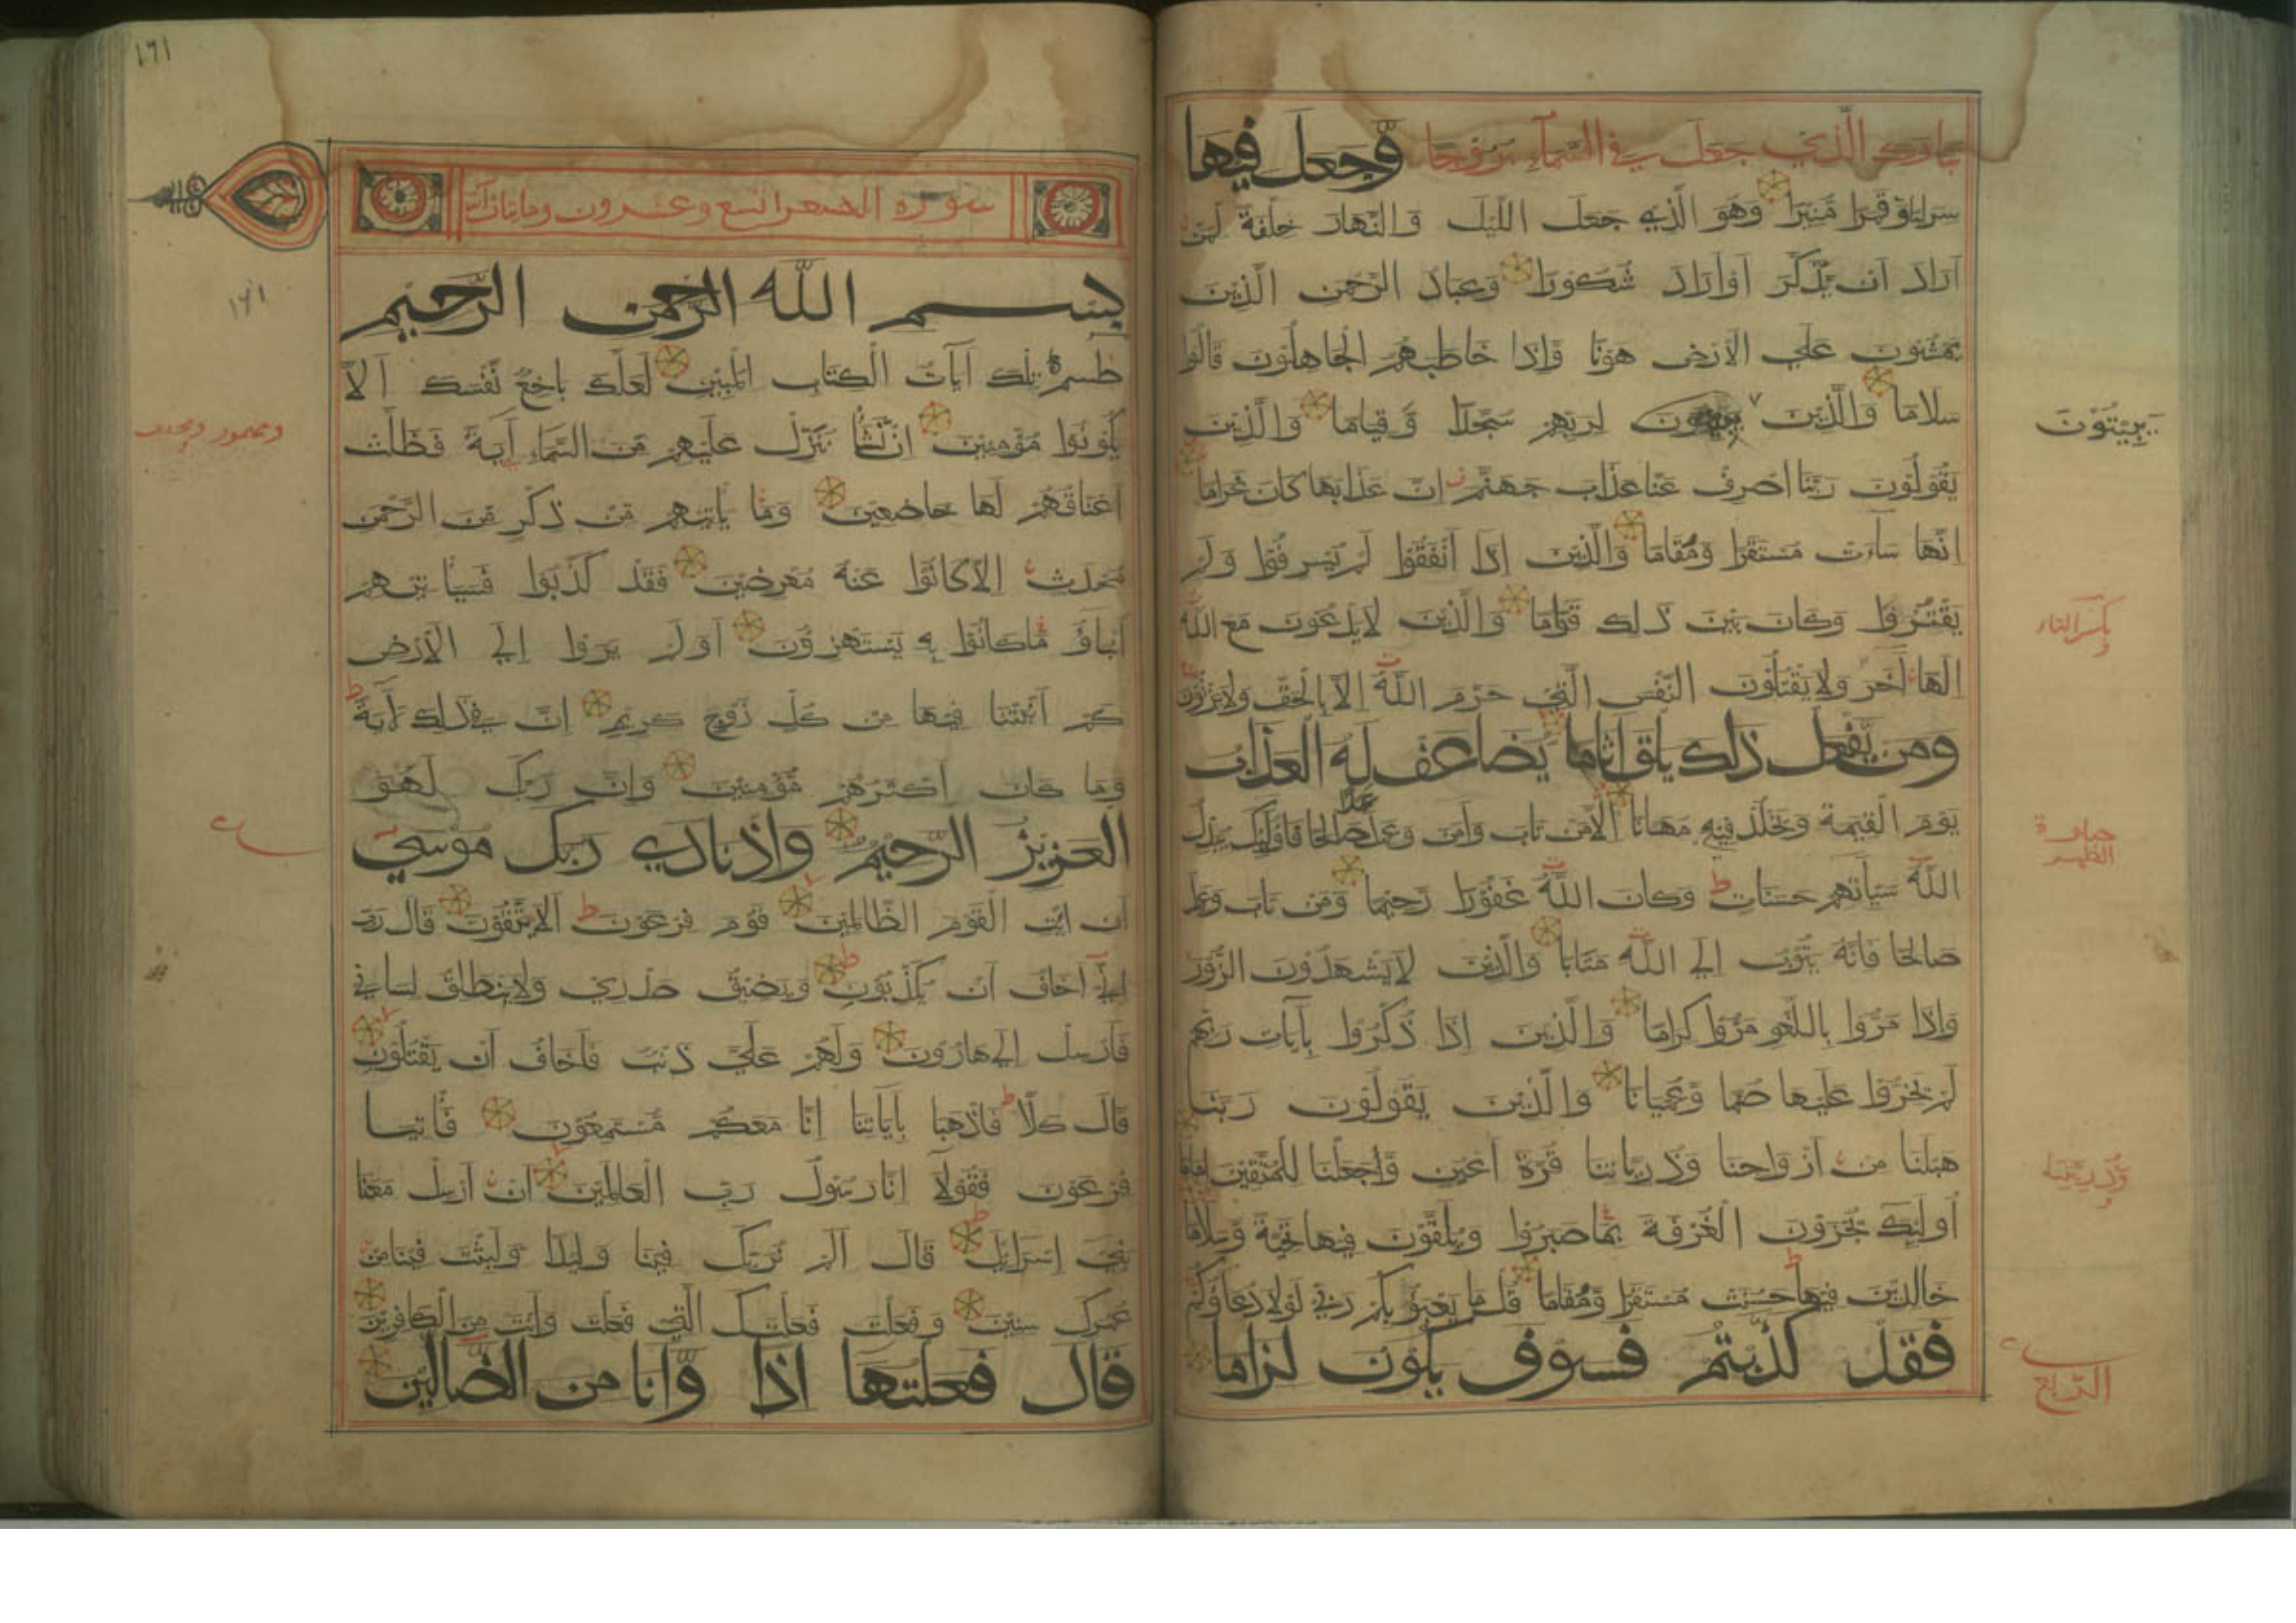 تبارك الذي جعل في السماء بروجا وجعل فيها
سراجا وقمرا منيرا وهو الذي جعل الليل والنهار خلفة لمن
اراد ان يذكر او اراد شكورا وعباد الرحمن الذين
يمشون على الارض هونا واذا خاطبهم الجاهلون قالوا
سلاما والذين لربهم سجدا وقياما والذين
يبيتون
يقولون ربنا اصرف عنا عذاب جهنم ان عذابها كان غراما
انها ساءت مستقرا ومقاما والذين اذا انفقوا لم يسرفوا ولم
يقتروا وكان بين ذلك قواما والذين لا يدعون مع الله
بكسر التاء
الها اخر ولا يقتلون النفس التي حرم الله الا بالحق ولا يزنون
ومن يفعل ذلك يلق اثاما يضاعف له العذاب
يوم القيمة ويخلد فيه مهانا الا من تاب وآمن وعمل عملا صالحا فاولئك يبدل
الله سيآتهم حسنات وكان الله غفورا رحيما ومن تاب وعمل
صالحا فانه يتوب الى الله متابا والذين لا يشهدون الزور
واذا مروا باللغو مروا كراما والذين اذا ذكروا بآيات ربهم
لم يخروا عليها صما وعميانا والذين يقولون ربنا
هب لنا من ازواجنا وذرياتنا قرة اعين واجعلنا للمتقين اماما
اولئك يجزون الغرفة بما صبروا ويلقون فيها تحية وسلاما
خالدين فيها حسنت مستقرا ومقاما قل ما يعبؤ بكم ربي لولا دعاؤكم
فقد كذبتم فسوف يكون لزاما
١٦١
سورة الشعرا تسع وعشرون ومايتان آية
بسم الله الرحمن الرحيم
١٦١
طسم تلك آيات الكتاب المبين لعلك باخع نفسك الا
يكونوا مؤمنين ان نشأ ننزل عليهم من السماء آية فظلت
اعناقهم لها خاضعين وما يأتيهم من ذكر من الرحمن
محدث الا كانوا عنه معرضين فقد كذبوا فسيأتيهم
انباؤ ما كانوا به يستهزؤن اولم يروا الى الارض
كم انبتنا فيها من كل زوج كريم ان في ذلك لآية
وما كان اكثرهم مؤمنين وان ربك لهو
العزيز الرحيم واذ نادى ربك موسى
ان ائت القوم الظالمين قوم فرعون الا يتقون قال رب
اني اخاف ان يكذبون ويضيق صدري ولا ينطلق لساني
فارسل الى هارون ولهم علي ذنب فاخاف ان يقتلون
قال كلا فاذهبا بآياتنا انا معكم مستمعون فأتيا
فرعون فقولا انا رسول رب العالمين ان ارسل معنا
بني اسرائيل قال الم نربك فينا وليدا ولبثت فينا من
عمرك سنين وفعلت فعلتك التي فعلت وانت من الكافرين
قال فعلتها اذا وانا من الضالين